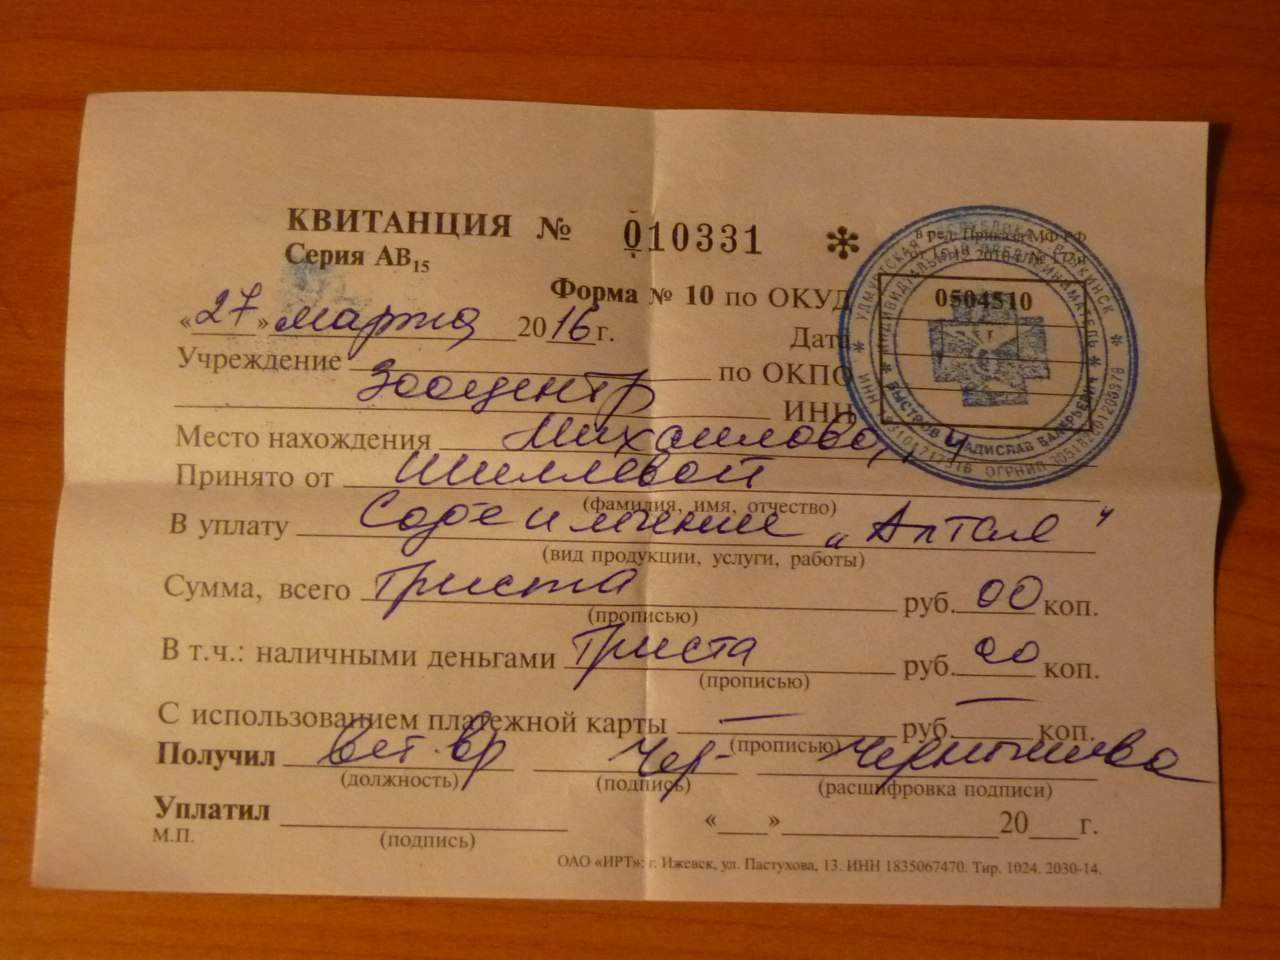 КВИТАНЦИЯ № 010331 *
Серия АВ15
в ред. Приказа МФ РФ
Форма № 10 по ОКУД 0504510
«27» марта 2016 г. Дата
Учреждение Зооцентр по ОКПО
ИНН
Место нахождения Михайлова, 4
Принято от Шиллевой
(фамилия, имя, отчество)
В уплату Сод-е и лечение „Алтая"
(вид продукции, услуги, работы)
Сумма, всего Триста руб. 00 коп.
(прописью)
В т.ч.: наличными деньгами Триста руб. 00 коп.
(прописью)
С использованием платежной карты — руб. — коп.
(прописью)
Получил Вет. вр Чер- Чернышева
(должность) (подпись) (расшифровка подписи)
Уплатил «___» 20___г.
М.П. (подпись)
ОАО «ИРТ»: г. Ижевск, ул. Пастухова, 13. ИНН 1835067470. Тир. 1024. 2030-14.
ИНДИВИДУАЛЬНЫЙ ПРЕДПРИНИМАТЕЛЬ
БЫСТРОВ ВЛАДИСЛАВ ВАЛЕРЬЕВИЧ